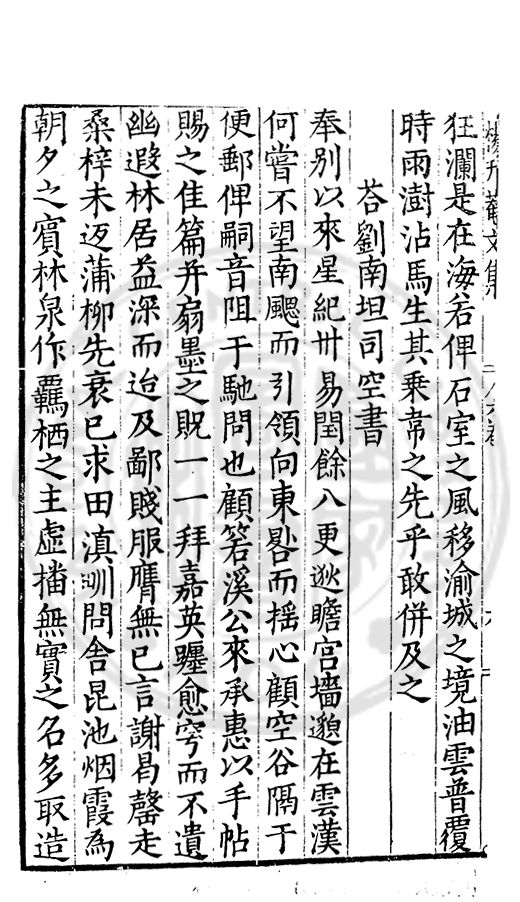 狂瀾是在海若俾石室之風移渝城之境油雲普覆
時雨澍沾馬生其乗韋之先乎敢併及之
荅劉南坦司空書
奉别以來星紀卅易閏餘八更逖瞻宫墻邈在雲漢
何嘗不望南颸而引領向東晷而摇心顧空谷隔于
便郵俾嗣音阻于馳問也顧箬溪公來承惠以手帖
賜之佳篇并扇墨之貺一一拜嘉英躔愈穹而不遺
幽遐林居益深而迨及鄙賤服膺無已言謝曷罄走
桑梓未返蒲柳先衰已求田滇㽛問舍昆池烟霞為
朝夕之賓林泉作羈栖之主虚播無實之名多取造